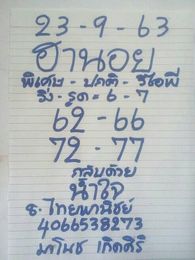 23-9-63
ฮานอย
พิเศษ-ปกติ-วีไอพี
วิ่ง-รูด=6-7
62-66
72-77
กลับด้วย
น้ำใจ
ธ.ไทยพานิชย์
4066538273
มาโนช เกิดศิริ